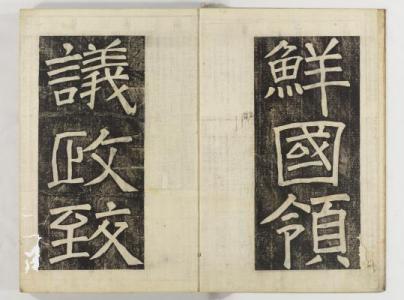 鮮國領
議政致